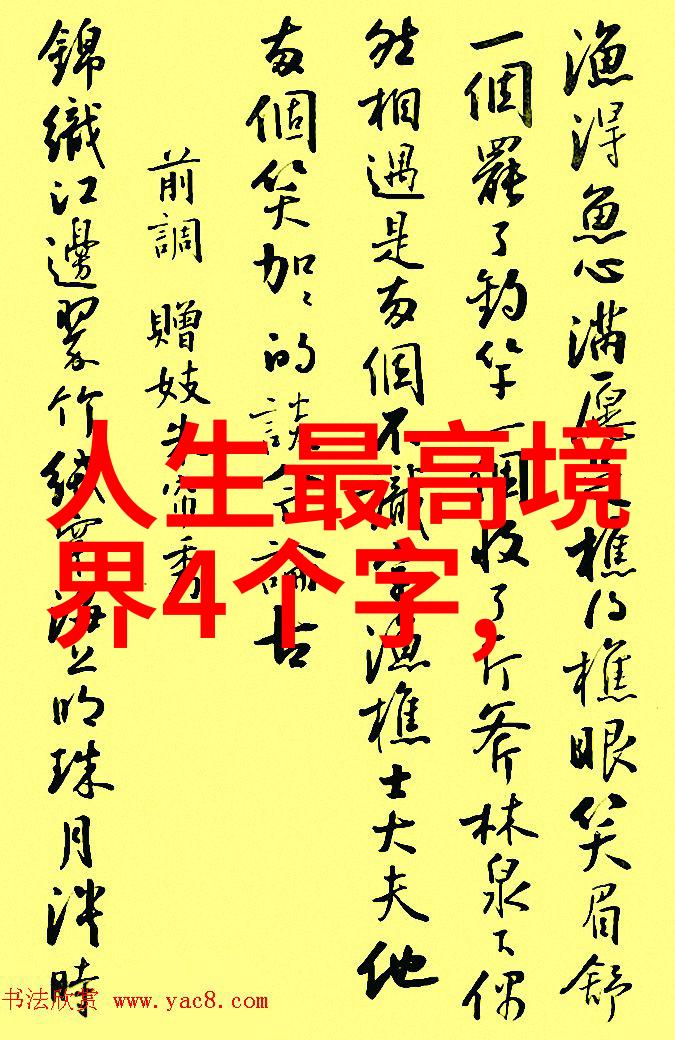 漁得魚心滿愿足樵得樵眼笑眉舒
一個罷了釣竿一個收了斤斧林泉下偶
然相遇是兩個不識字漁樵士大夫他
兩個笑加〻的談今論古
前調 贈妓朱帘秀
錦織江邊翠竹絨穿海上明珠月淡時
人生最高境
界4个字，
书法欣赏 www.yac8.com